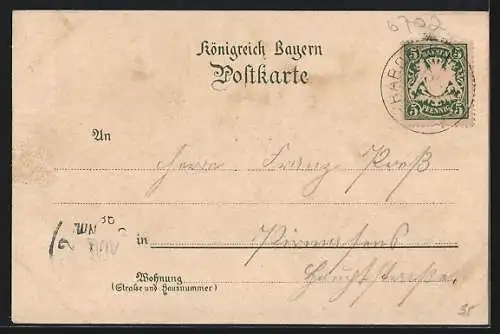 6702
Königreich Bayern
Postkarte
5 BAYERN 5
5 PFENNIG 5
HARD
An
Herrn Franz Preß
in Pirmasens
Wohnung Hauptstraße
(Straße und Hausnummer)
35